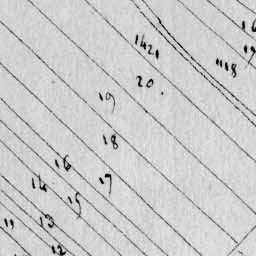 16
1421
19
"18
20.
19
18
16
17
14
15
13
11
12